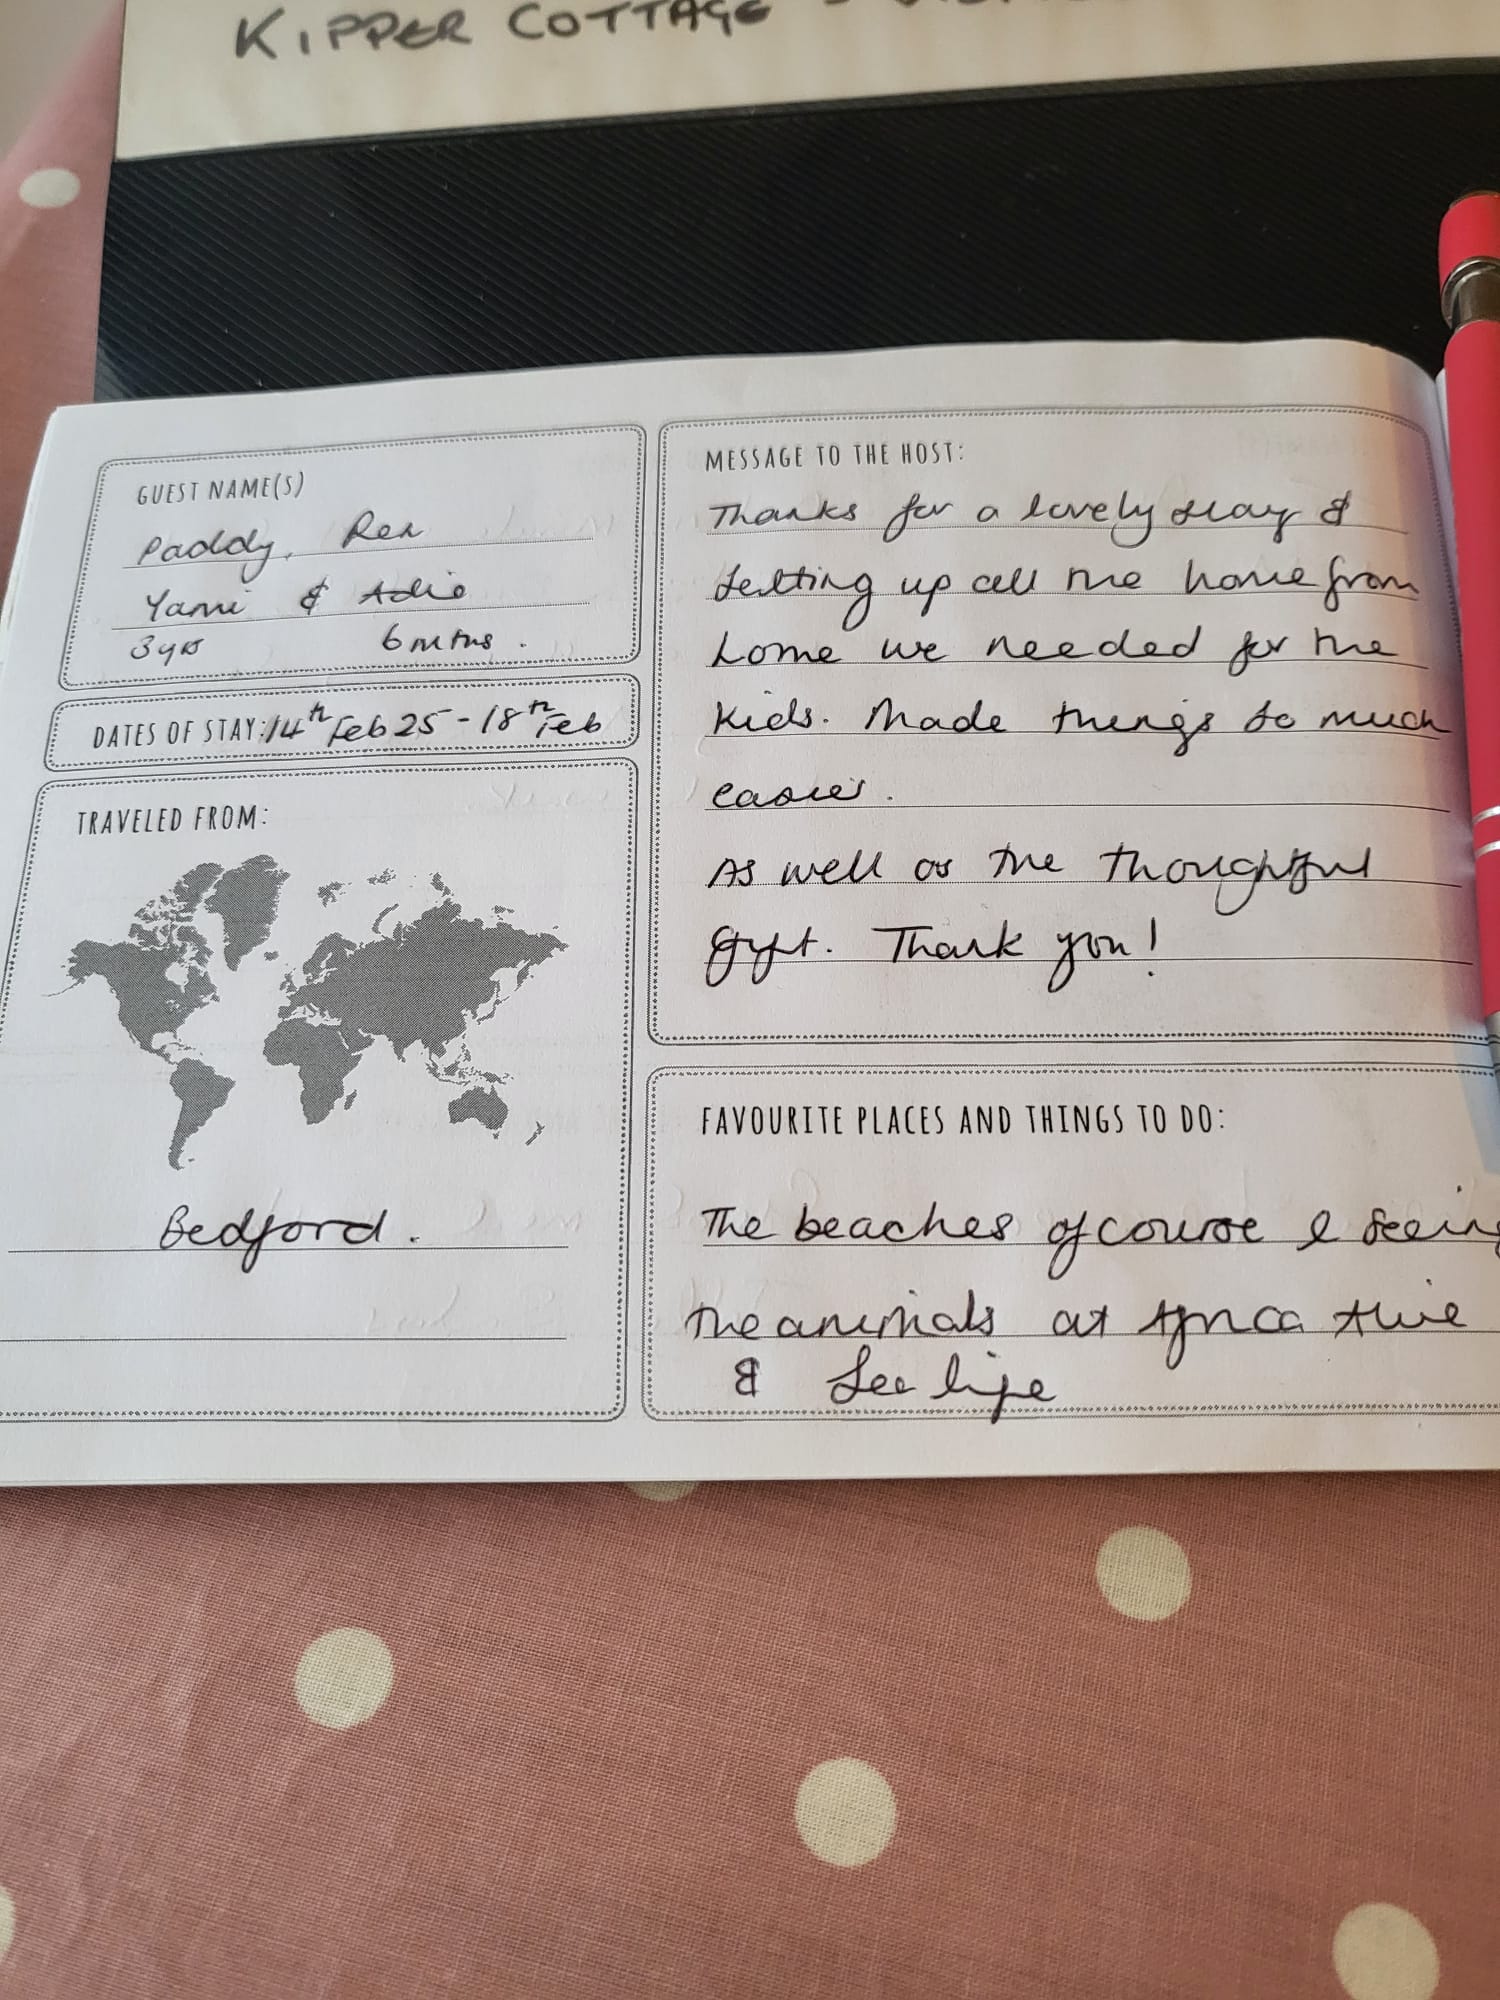 KIPPER COTTAGE -
GUEST NAME(S)
Paddy, Rea
Yami & Adio
3yrs 6mths.
DATES OF STAY: 14th Feb 25 - 18th Feb
TRAVELED FROM:
Bedford.
MESSAGE TO THE HOST:
Thanks for a lovely stay &
setting up all the home from
home we needed for the
kids. Made things so much
easier.
As well as the thoughtful
gift. Thank you!
FAVOURITE PLACES AND THINGS TO DO:
The beaches of course & seeing
the animals at Africa Alive
& Sea life